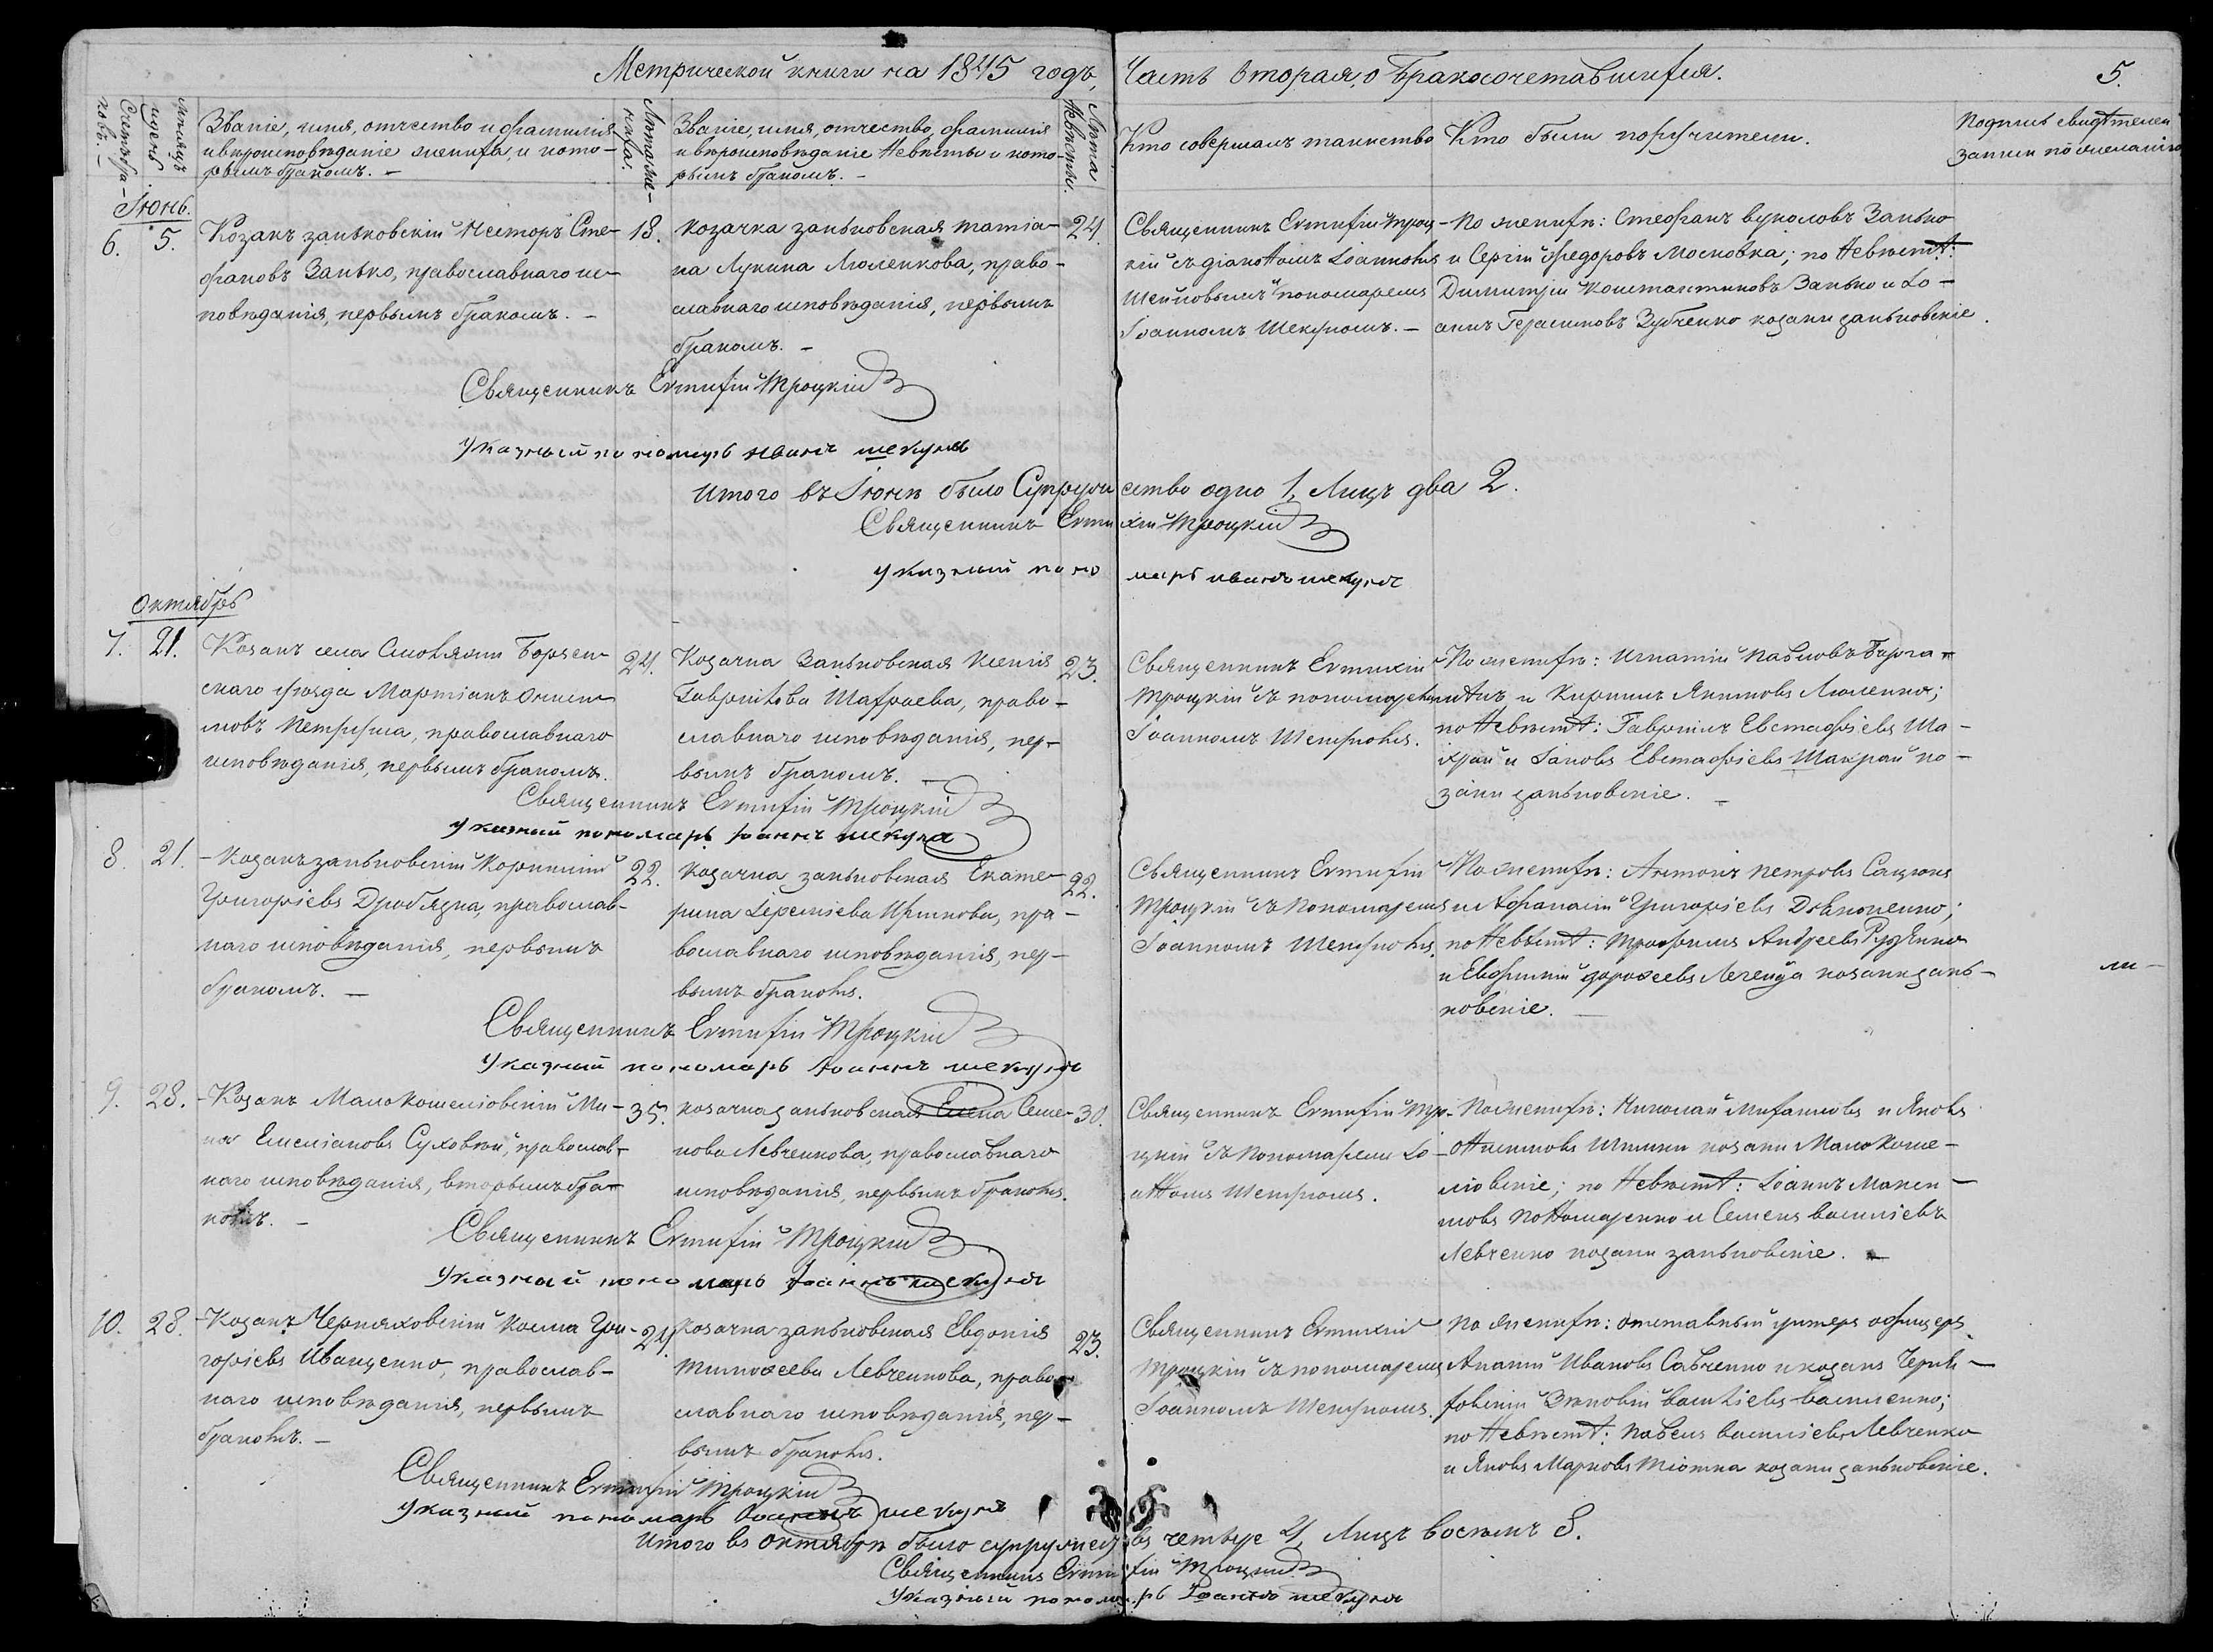 Метрической книги на 1845 годъ, Часть вторая, о бракосочетавшихся.
5.
Счетъ бра-
ковъ. –
Мѣсяцъ
и день
Званіе, имя, отчество и фамилія
и вѣроисповѣданіе жениха, и кото-
рымъ бракомъ. –
Лѣта же-
ниха.
Званіе, имя, отчество, фамилія
и вѣроисповѣданіе невѣсты и кото-
рымъ бракомъ. –
Лѣта
невѣсты.
Кто совершалъ таинство
Кто были поручители.
Подпись свидѣтелей
записи по желанію
Іюнь.
6. 5.
Козакъ заньковскій Несторъ Сте-
фановъ Занько, православнаго ис-
повѣданія, первымъ бракомъ. –
18.
козачка заньковская татіа-
на Лукина Люленкова, право-
славнаго исповѣданія, первымъ
бракомъ. –
24.
Священникъ Евтихій Троц-
кій съ діакономъ Іоанномъ
и пономаремъ
Іоанномъ Шекуномъ. –
По женихѣ: Стефанъ вуколовъ Занько
и Сергій Федоровъ Московка; по невѣстѣ:
Димитрій Константиновъ Занько и Іо-
аннъ Герасимовъ Зубченко козаки заньковскіе.
Священникъ Евтихій Троцкій
Указный пономарь иванъ шекунъ
Итого въ Іюнѣ было Супружество одно 1, Лицъ два 2.
Священникъ Евтихій Троцкій
указный пономарь иванъ шекунъ
Октябрь
7. 21.
Козакъ села Смолянки Борзен-
скаго уѣзда Мартіанъ
Петруша, православнаго
исповѣданія, первымъ бракомъ.
24.
Козачка Заньковская Ксенія
Гавриилова Шахраева, право-
славнаго исповѣданія, пер-
вымъ бракомъ. –
23.
Священникъ Евтихій
Троцкій съ пономаремъ
Іоанномъ Шекуномъ.
По женихѣ: Игнатій Павловъ
и Кириллъ Якимовъ Люленко;
по невѣстѣ: Гавріилъ Евстафіевъ Ша-
храй и Іаковъ Евстафіевъ Шахрай ко-
заки заньковскіе. –
Священникъ Евтихій Троцкій
указный пономарь іоаннъ шекунъ
8. 21.
Козакъ заньковскій Корнилій
Григоріевъ Дробязка, православ-
наго исповѣданія, первымъ
бракомъ. –
22.
козачка заньковская Екате-
рина Іереміева, пра-
вославнаго исповѣданія, пер-
вымъ бракомъ.
22.
Священникъ Евтихій
Троцкій съ пономаремъ
Іоанномъ Шекуномъ.
По женихѣ: Антонъ Петровъ
и Афанасій Григоріевъ;
по невѣстѣ: Трофимъ Андреевъ
и Евфимій дороѳеевъ Легейда козаки зань-
ковскіе. –
Священникъ Евтихій Троцкій
Указный пономарь іоаннъ шекунъ
9. 28.
Козакъ Малокошелювскій Ми-
на Емеліановъ Суховѣй, православ-
наго исповѣданія, вторымъ бра-
комъ. –
35.
козачка заньковская Елена Семе-
нова Левченкова, православнаго
исповѣданія, первымъ бракомъ.
30.
Священникъ Евтихій Тро-
цкій съ пономаремъ Іо-
анномъ Шекуномъ.
По женихѣ: Николай и Яковъ
козаки Малокоше-
лювскіе; по невѣстѣ: Іоаннъ Макси-
мовъ Пономаренко и Семенъ василіевъ
Левченко козаки заньковскіе. –
Священникъ Евтихій Троцкій
Указный пономарь іоаннъ шекунъ
10. 28.
Козакъ Черняховскій косма Гри-
горіевъ Иващенко, православ-
наго исповѣданія, первымъ
бракомъ. –
24.
козачка заньковская Евдокія
Тимоѳеева Левченкова, право-
славнаго исповѣданія, пер-
вымъ бракомъ.
23.
Священникъ Евтихій
Троцкій съ пономаремъ
Іоанномъ Шекуномъ.
По женихѣ: отставный унтеръ офицеръ
Ананій Ивановъ Савченко и козакъ Черня-
ховскій Зѣновій василіевъ василенко;
по невѣстѣ: Павелъ василіевъ Левченко
и Яковъ Марковъ козаки заньковскіе.
Священникъ Евтихій Троцкій
Указный пономарь Іоаннъ шекунъ
Итого въ Октябрѣ было супружествъ четыре 4, Лицъ восемь 8.
Священникъ Евтихій Троцкій
Указный пономарь Іоаннъ шекунъ